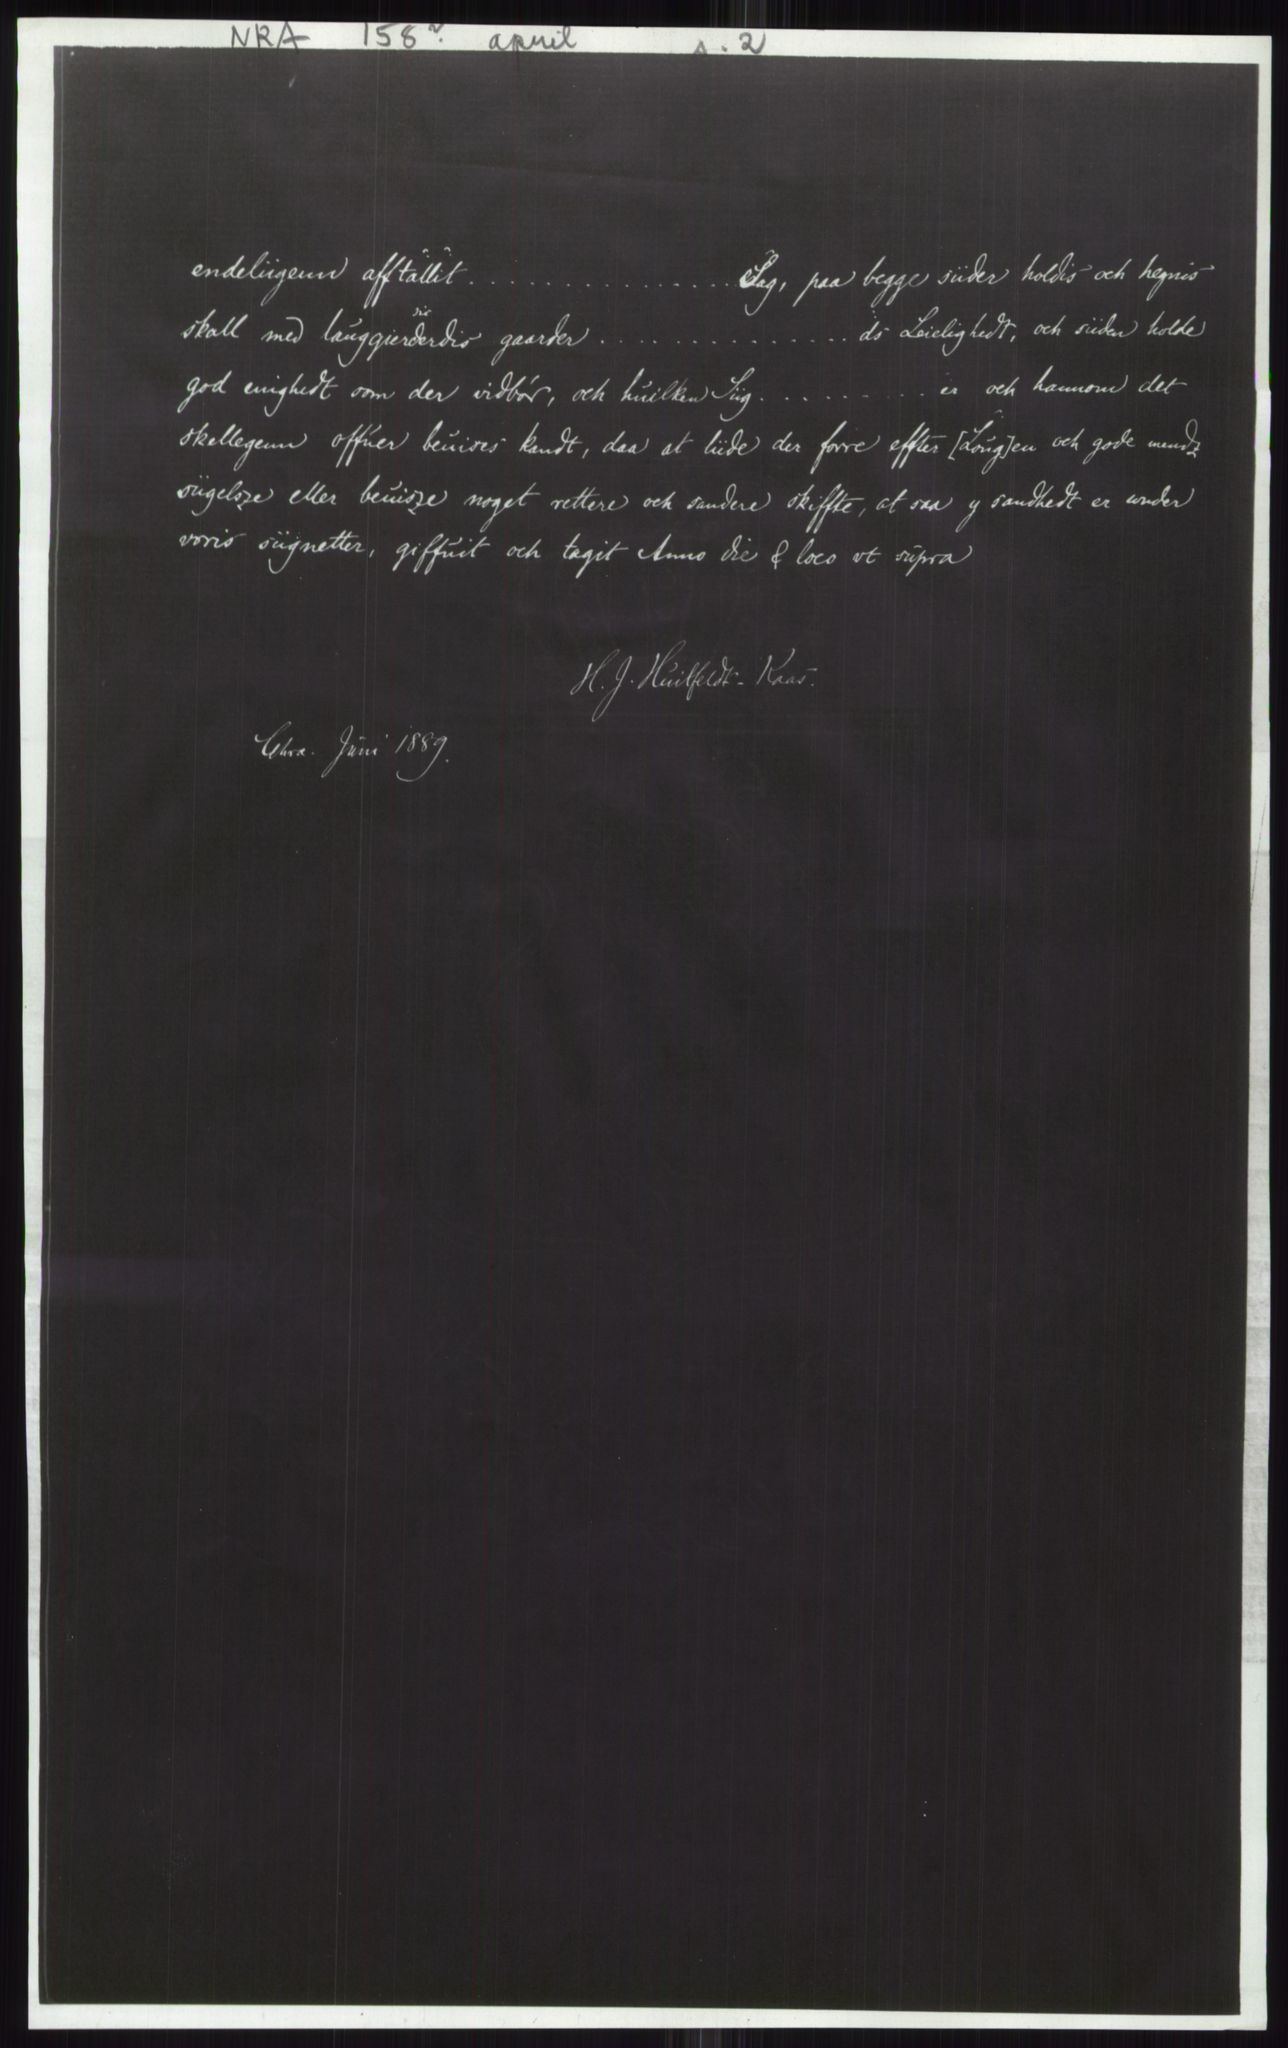 NRA 158? april s. 2
endeliigenn afftallit . . . . . . . . . . . . . . . Sag, paa begge siider holdis och hegnis
sic
skall med lauggierderdis gaarder . . . . . . . . . . . . . . ds Leielighedt, och siiden holde
god enighedt som der vidbør, och huilken Siig . . . . . . . . . er och hannom det
skellegenn offuer beuises kandt, daa at liide der forre effter [Loug]en och gode mendz
siigelsze eller beuisze noget rettere och sandere skiffte, at saa y sandhedt er wnder
voris siignetter, giffuit och tagit Anno die & loco vt supra
H. J. Huitfeldt-Kaas.
Chra. Juni 1889.